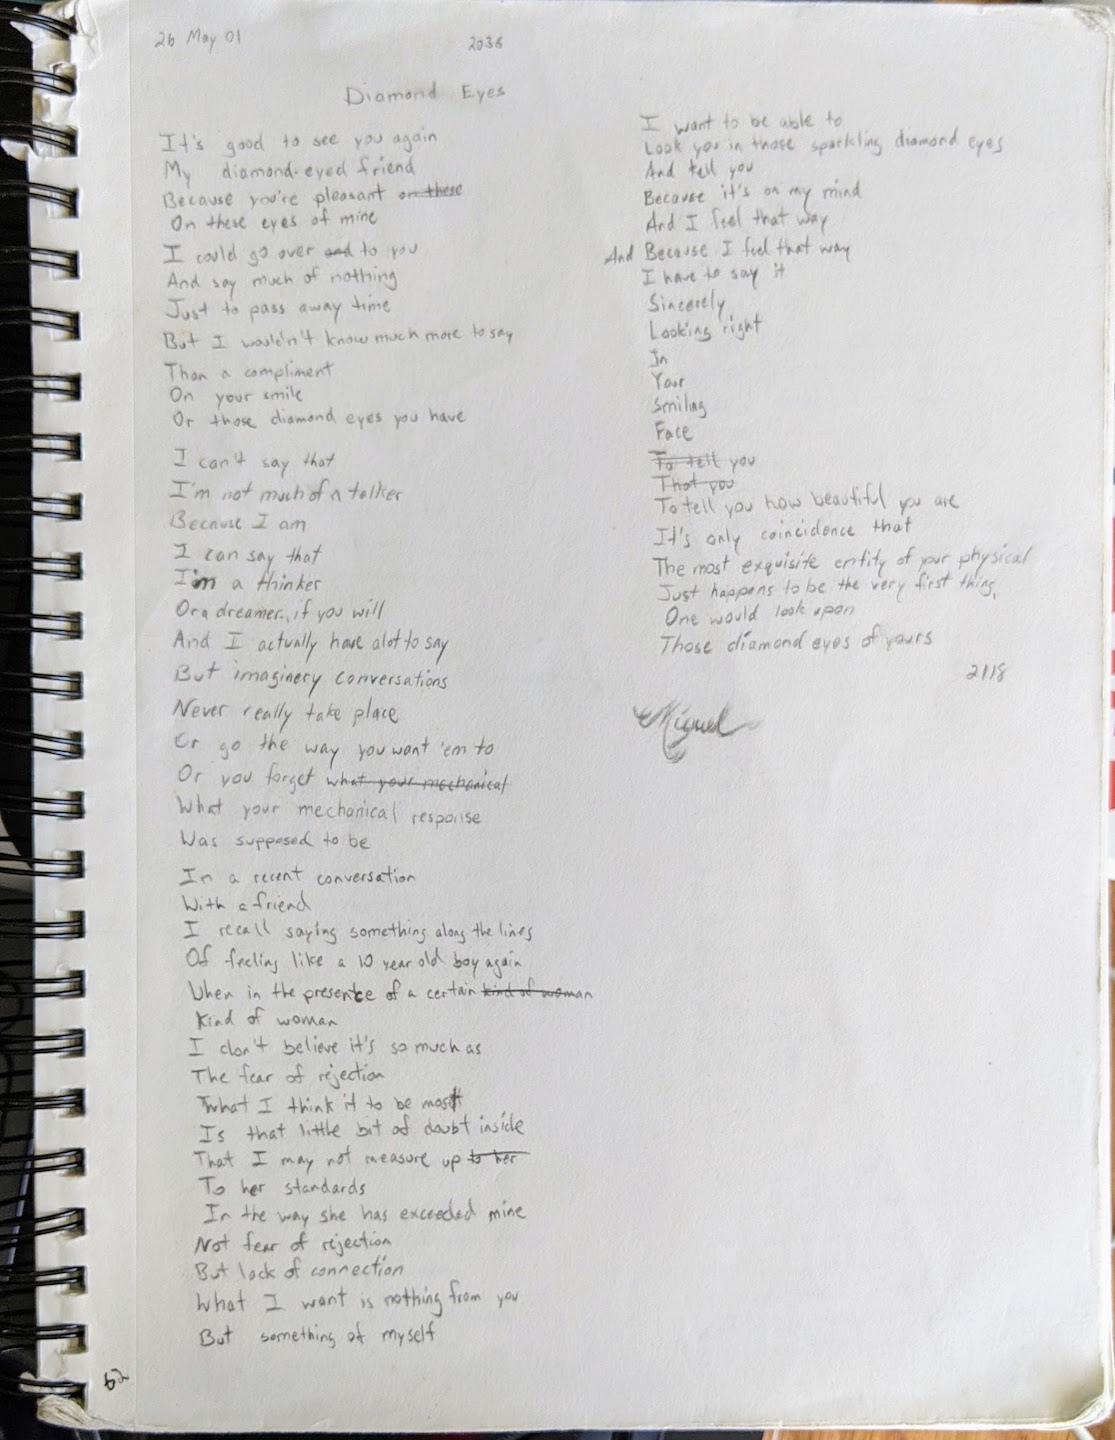 26 May 01
2038
Diamond Eyes
It's good to see you again
My diamond-eyed friend
Because you're pleasant on these
On these eyes of mine
I could go over and to you
And say much of nothing
Just to pass away time
But I wouldn't know much more to say
Than a compliment
On your smile
Or those diamond eyes you have
I can't say that
I'm not much of a talker
Because I am
I can say that
I'm a thinker
Or a dreamer, if you will
And I actually have alot to say
But imaginery conversations
Never really take place
Or go the way you want 'em to
Or you forget what your mechanical
What your mechanical response
Was supposed to be
In a recent conversation
With a friend
I recall saying something along the lines
Of feeling like a 10 year old boy again
When in the presence of a certain kind of woman
Kind of woman
I don't believe it's so much as
The fear of rejection
What I think it to be most
Is that little bit of doubt inside
That I may not measure up to her
To her standards
In the way she has exceeded mine
Not fear of rejection
But lack of connection
What I want is nothing from you
But something of myself
62
I want to be able to
Look you in those sparkling diamond eyes
And tell you
Because it's on my mind
And I feel that way
And Because I feel that way
I have to say it
Sincerely
Looking right
In
Your
Smiling
Face
To tell you
That you
To tell you how beautiful you are
It's only coincidence that
The most exquisite entity of your physical
Just happens to be the very first thing
One would look upon
Those diamond eyes of yours
2118
Miguel